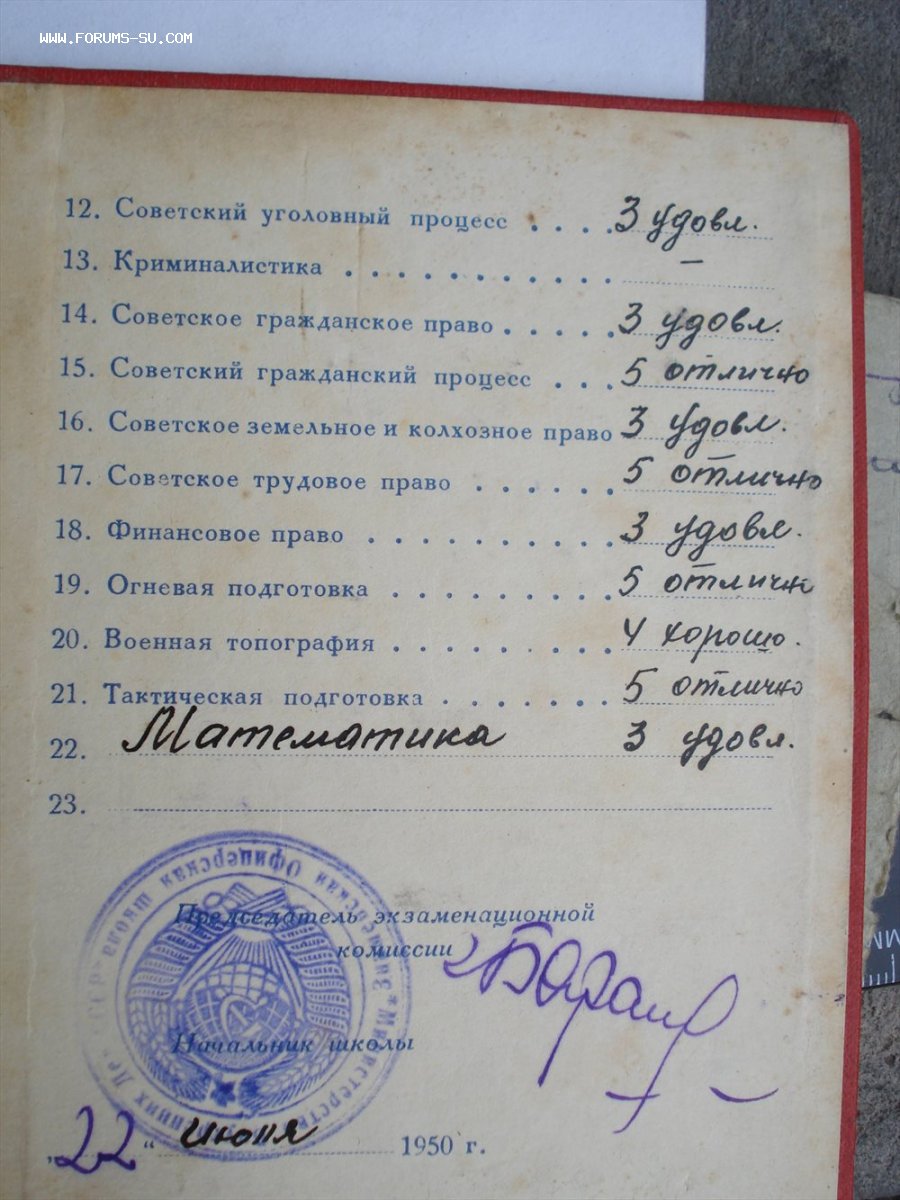 WWW.FORUMS-SU.COM
12. Советский уголовный процесс . . . . 3 удовл.
13. Криминалистика . . . . . . . . . . . –
14. Советское гражданское право . . . . 3 удовл.
15. Советский гражданский процесс . . . 5 отлично
16. Советское земельное и колхозное право 3 удовл.
17. Советское трудовое право . . . . . . 5 отлично
18. Финансовое право . . . . . . . . . . 3 удовл.
19. Огневая подготовка . . . . . . . . . 5 отличн
20. Военная топография . . . . . . . . . 4 хорошо.
21. Тактическая подготовка . . . . . . . 5 отлично
22. Математика 3 удовл.
23.
Офицерская школа
Министерств
Председатель экзаменационной
комиссии
Начальник школы
„22“ июня 1950 г.